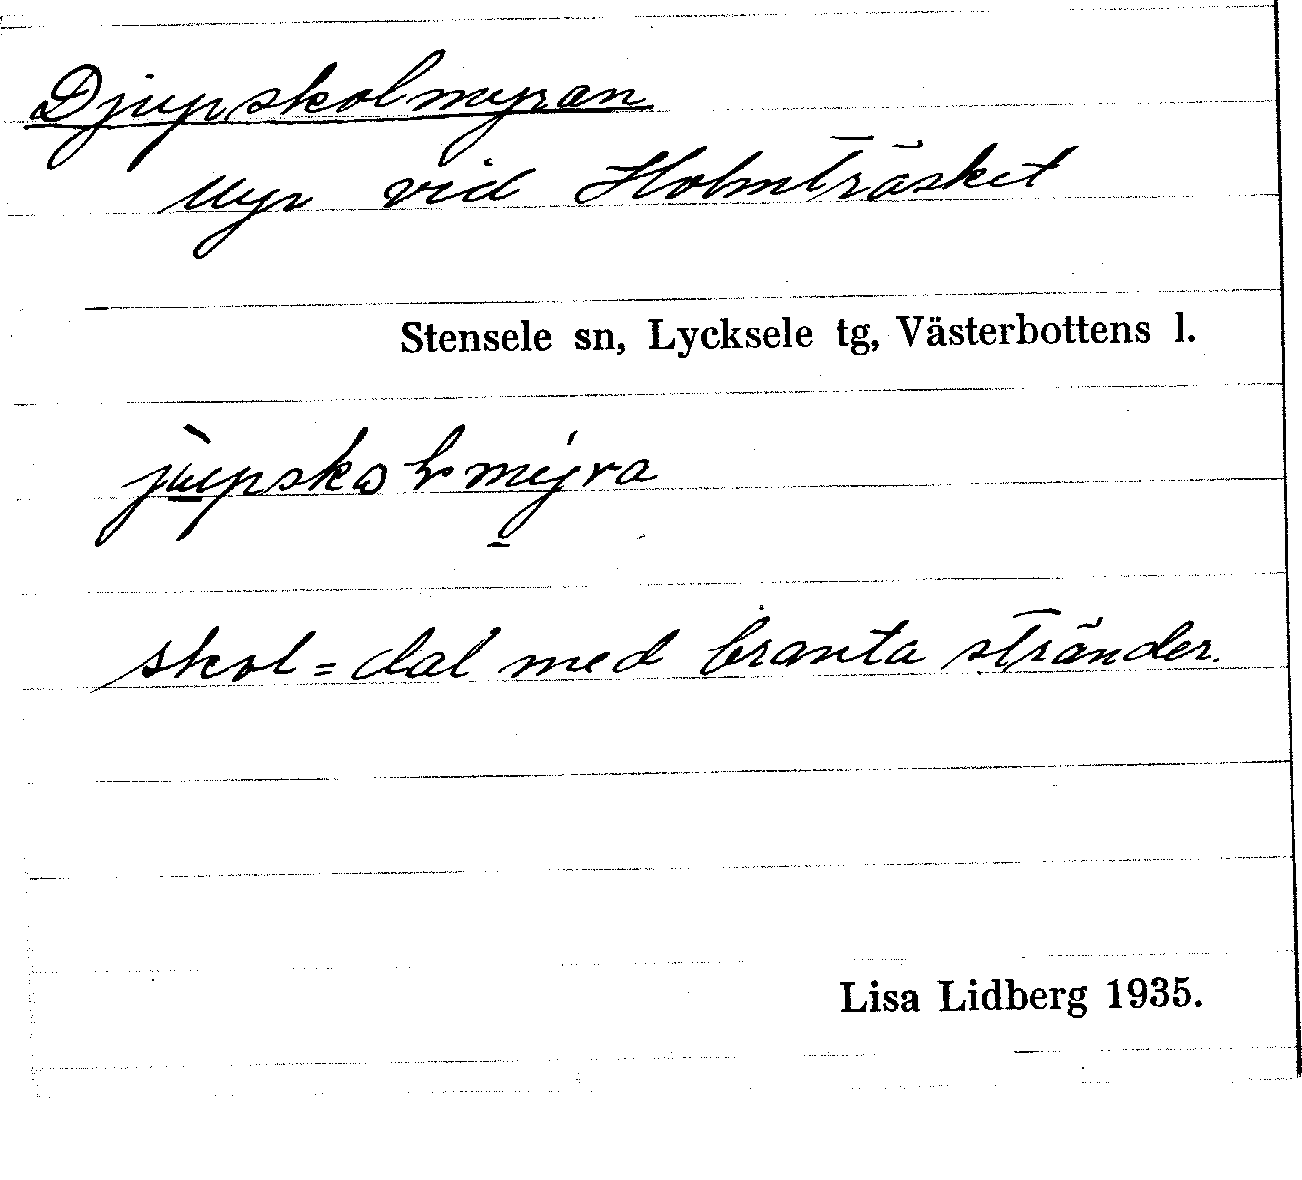 Djupskolmyran
Myr vid Holmträsket
Stensele sn, Lycksele tg, Västerbottens l.
skol = dal med branta stränder.
Lisa Lidberg 1935.